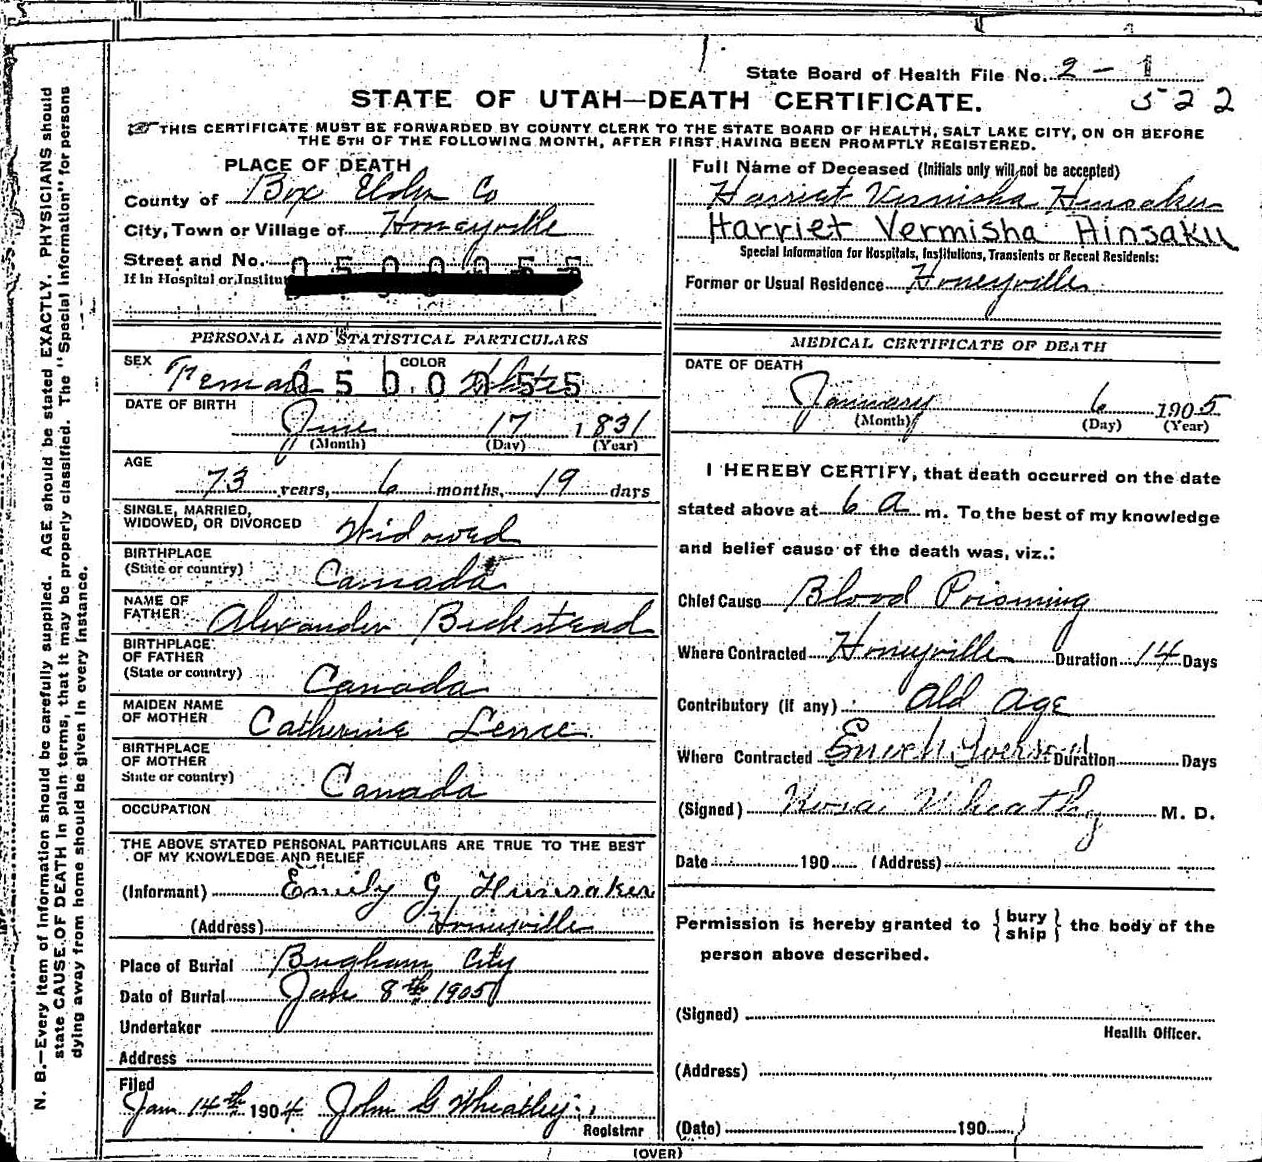 State Board of Health File No. 2 - 1
522
STATE OF UTAH—DEATH CERTIFICATE.
THIS CERTIFICATE MUST BE FORWARDED BY COUNTY CLERK TO THE STATE BOARD OF HEALTH, SALT LAKE CITY, ON OR BEFORE
THE 5TH OF THE FOLLOWING MONTH, AFTER FIRST HAVING BEEN PROMPTLY REGISTERED.
PLACE OF DEATH
County of Box Elder Co
City, Town or Village of Honeyville
Street and No. 0500055
If in Hospital or Institu
Full Name of Deceased (Initials only will not be accepted)
Harriet Vermisha Hunsaker
Harriet Vermisha Hinsaku
Special Information for Hospitals, Institutions, Transients or Recent Residents:
Former or Usual Residence Honeyville
PERSONAL AND STATISTICAL PARTICULARS
SEX Female COLOR White
0500055
DATE OF BIRTH
June 17 1831
(Month) (Day) (Year)
AGE
73 years, 6 months, 19 days
SINGLE, MARRIED,
WIDOWED, OR DIVORCED Widowed
BIRTHPLACE
(State or country) Canada
NAME OF
FATHER Alexander Beckstead
BIRTHPLACE
OF FATHER
(State or country) Canada
MAIDEN NAME
OF MOTHER Catherine Lence
BIRTHPLACE
OF MOTHER
State or country) Canada
OCCUPATION
THE ABOVE STATED PERSONAL PARTICULARS ARE TRUE TO THE BEST
OF MY KNOWLEDGE AND RELIEF
(Informant) Emily G Hunsaker
(Address) Honeyville
Place of Burial Brigham City
Date of Burial Jan 8th 1905
Undertaker
Address
Filed
Jan 14th 1904 John G Wheatley
Registrar
MEDICAL CERTIFICATE OF DEATH
DATE OF DEATH
January 6 1905
(Month) (Day) (Year)
I HEREBY CERTIFY, that death occurred on the date
stated above at 6 a m. To the best of my knowledge
and belief cause of the death was, viz.:
Chief Cause Blood Poisining
Where Contracted Honeyville Duration 14 Days
Contributory (if any) Old Age
Where Contracted Duration Days
(Signed) Wheatley M. D.
Date 190 (Address)
Permission is hereby granted to { bury ship } the body of the
person above described.
(Signed)
Health Officer.
(Address)
(Date) 190
(OVER)
N. B.—Every item of information should be carefully supplied. AGE should be stated EXACTLY. PHYSICIANS should
state CAUSE OF DEATH in plain terms, that it may be properly classified. The "Special Information" for persons
dying away from home should be given in every instance.